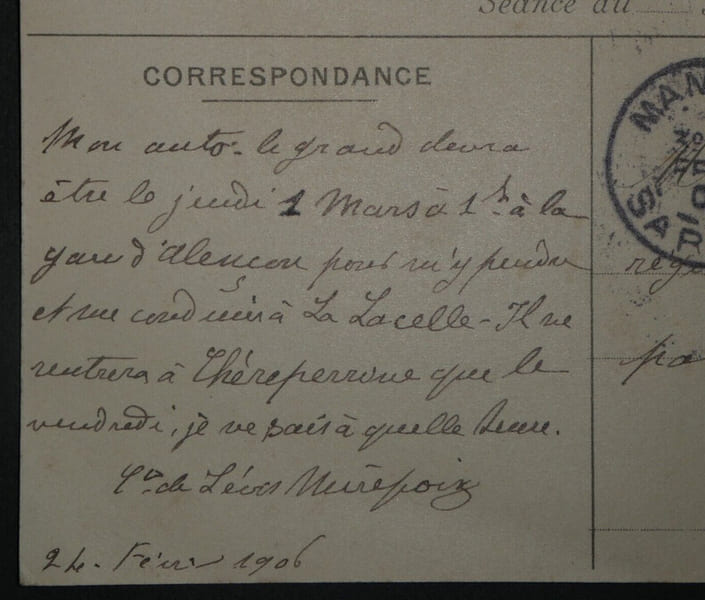 Séance du
CORRESPONDANCE
Mon auto - le grand devra
être le jeudi 1 Mars à 1h à la
gare d'Alençon pour m'y prendre
et me conduire à La Lacelle - Il ne
rentrera à Chéreperrine que le
vendredi, je ne sais à quelle heure.
Cte de Lévis Mirepoix
24. Févr 1906
MAM
SAR